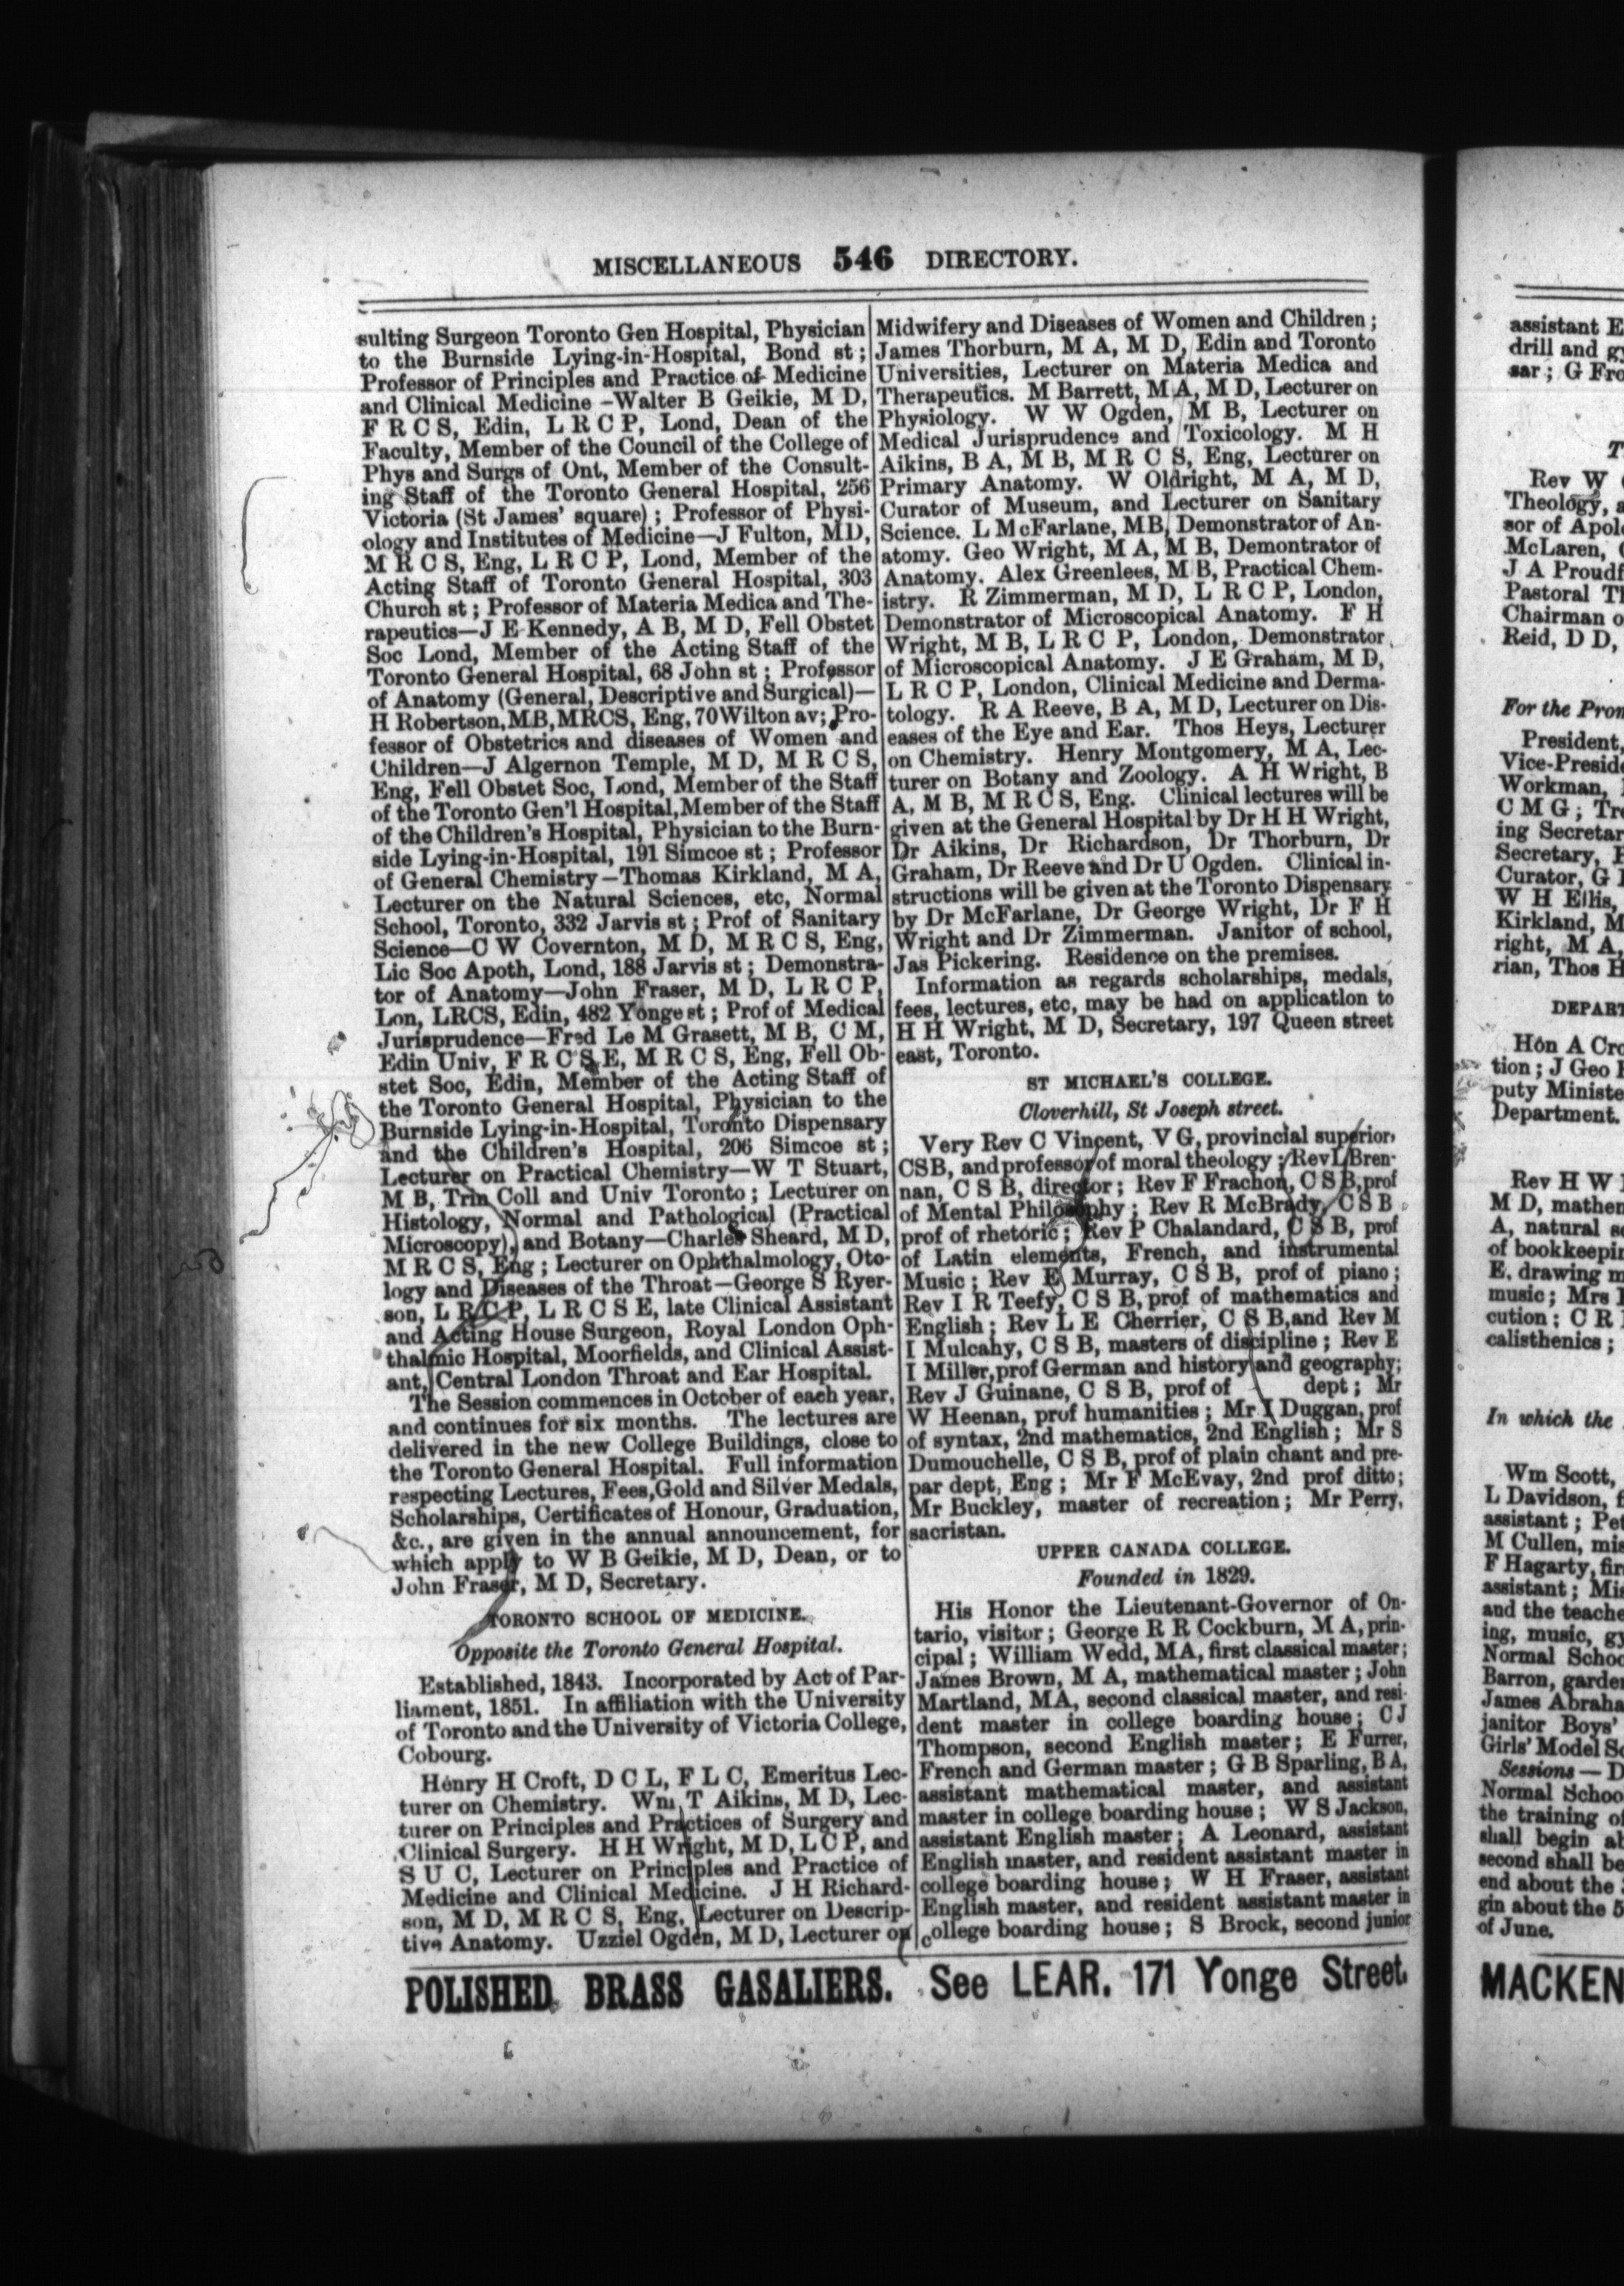 MISCELLANEOUS 546 DIRECTORY.
sulting Surgeon Toronto Gen Hospital, Physician
to the Burnside Lying-in-Hospital, Bond st;
Professor of Principles and Practice of Medicine
and Clinical Medicine -Walter B Geikie, M D,
F R C S, Edin, L R C P, Lond, Dean of the
Faculty, Member of the Council of the College of
Phys and Surgs of Ont, Member of the Consult-
ing Staff of the Toronto General Hospital, 256
Victoria (St James' square); Professor of Physi-
ology and Institutes of Medicine—J Fulton, MD,
M R C S, Eng, L R C P, Lond, Member of the
Acting Staff of Toronto General Hospital, 303
Church st; Professor of Materia Medica and The-
rapeutics—J E Kennedy, A B, M D, Fell Obstet
Soc Lond, Member of the Acting Staff of the
Toronto General Hospital, 68 John st; Professor
of Anatomy (General, Descriptive and Surgical)—
H Robertson, MB, MRCS, Eng, 70 Wilton av; Pro-
fessor of Obstetrics and diseases of Women and
Children—J Algernon Temple, M D, M R C S,
Eng, Fell Obstet Soc, Lond, Member of the Staff
of the Toronto Gen'l Hospital, Member of the Staff
of the Children's Hospital, Physician to the Burn-
side Lying-in-Hospital, 191 Simcoe st; Professor
of General Chemistry—Thomas Kirkland, M A,
Lecturer on the Natural Sciences, etc, Normal
School, Toronto, 332 Jarvis st; Prof of Sanitary
Science—C W Covernton, M D, M R C S, Eng,
Lic Soc Apoth, Lond, 188 Jarvis st; Demonstra-
tor of Anatomy—John Fraser, M D, L R C P,
Lon, LRCS, Edin, 482 Yonge st; Prof of Medical
Jurisprudence—Fred Le M Grasett, M B, C M,
Edin Univ, F R C S E, M R C S, Eng, Fell Ob-
stet Soc, Edin, Member of the Acting Staff of
the Toronto General Hospital, Physician to the
Burnside Lying-in-Hospital, Toronto Dispensary
and the Children's Hospital, 206 Simcoe st;
Lecturer on Practical Chemistry—W T Stuart,
M B, Trin Coll and Univ Toronto; Lecturer on
Histology, Normal and Pathological (Practical
Microscopy), and Botany—Charles Sheard, M D,
M R C S, Eng; Lecturer on Ophthalmology, Oto-
logy and Diseases of the Throat—George S Ryer-
son, L R C P, L R C S E, late Clinical Assistant
and Acting House Surgeon, Royal London Oph-
thalmic Hospital, Moorfields, and Clinical Assist-
ant, Central London Throat and Ear Hospital.
The Session commences in October of each year,
and continues for six months. The lectures are
delivered in the new College Buildings, close to
the Toronto General Hospital. Full information
respecting Lectures, Fees, Gold and Silver Medals,
Scholarships, Certificates of Honour, Graduation,
&c., are given in the annual announcement, for
which apply to W B Geikie, M D, Dean, or to
John Fraser, M D, Secretary.
TORONTO SCHOOL OF MEDICINE.
Opposite the Toronto General Hospital.
Established, 1843. Incorporated by Act of Par-
liament, 1851. In affiliation with the University
of Toronto and the University of Victoria College,
Cobourg.
Henry H Croft, D C L, F L C, Emeritus Lec-
turer on Chemistry. Wm T Aikins, M D, Lec-
turer on Principles and Practices of Surgery and
Clinical Surgery. H H Wright, M D, L C P, and
S U C, Lecturer on Principles and Practice of
Medicine and Clinical Medicine. J H Richard-
son, M D, M R C S, Eng, Lecturer on Descrip-
tive Anatomy. Uzziel Ogden, M D, Lecturer on
Midwifery and Diseases of Women and Children;
James Thorburn, M A, M D, Edin and Toronto
Universities, Lecturer on Materia Medica and
Therapeutics. M Barrett, M A, M D, Lecturer on
Physiology. W W Ogden, M B, Lecturer on
Medical Jurisprudence and Toxicology. M H
Aikins, B A, M B, M R C S, Eng, Lecturer on
Primary Anatomy. W Oldright, M A, M D,
Curator of Museum, and Lecturer on Sanitary
Science. L McFarlane, MB, Demonstrator of An-
atomy. Geo Wright, M A, M B, Demontrator of
Anatomy. Alex Greenlees, M B, Practical Chem-
istry. R Zimmerman, M D, L R C P, London,
Demonstrator of Microscopical Anatomy. F H
Wright, M B, L R C P, London, Demonstrator
of Microscopical Anatomy. J E Graham, M D,
L R C P, London, Clinical Medicine and Derma-
tology. R A Reeve, B A, M D, Lecturer on Dis-
eases of the Eye and Ear. Thos Heys, Lecturer
on Chemistry. Henry Montgomery, M A, Lec-
turer on Botany and Zoology. A H Wright, B
A, M B, M R C S, Eng. Clinical lectures will be
given at the General Hospital by Dr H H Wright,
Dr Aikins, Dr Richardson, Dr Thorburn, Dr
Graham, Dr Reeve and Dr U Ogden. Clinical in-
structions will be given at the Toronto Dispensary
by Dr McFarlane, Dr George Wright, Dr F H
Wright and Dr Zimmerman. Janitor of school,
Jas Pickering. Residence on the premises.
Information as regards scholarships, medals,
fees, lectures, etc, may be had on application to
H H Wright, M D, Secretary, 197 Queen street
east, Toronto.
ST MICHAEL'S COLLEGE.
Cloverhill, St Joseph street.
Very Rev C Vincent, V G, provincial superior,
CSB, and professor of moral theology; Rev L Bren-
nan, C S B, director; Rev F Frachon, C S B, prof
of Mental Philosophy; Rev R McBrady, C S B
prof of rhetoric; Rev P Chalandard, C S B, prof
of Latin elements, French, and instrumental
Music; Rev E Murray, C S B, prof of piano;
Rev I R Teefy, C S B, prof of mathematics and
English; Rev L E Cherrier, C S B, and Rev M
I Mulcahy, C S B, masters of discipline; Rev E
I Miller, prof German and history and geography;
Rev J Guinane, C S B, prof of dept; Mr
W Heenan, prof humanities; Mr I Duggan, prof
of syntax, 2nd mathematics, 2nd English; Mr S
Dumouchelle, C S B, prof of plain chant and pre-
par dept, Eng; Mr F McEvay, 2nd prof ditto;
Mr Buckley, master of recreation; Mr Perry,
sacristan.
UPPER CANADA COLLEGE.
Founded in 1829.
His Honor the Lieutenant-Governor of On-
tario, visitor; George R R Cockburn, M A, prin-
cipal; William Wedd, MA, first classical master;
James Brown, M A, mathematical master; John
Martland, MA, second classical master, and resi-
dent master in college boarding house; C J
Thompson, second English master; E Furrer,
French and German master; G B Sparling, B A,
assistant mathematical master, and assistant
master in college boarding house; W S Jackson,
assistant English master; A Leonard, assistant
English master, and resident assistant master in
college boarding house; W H Fraser, assistant
English master, and resident assistant master in
college boarding house; S Brock, second junior
POLISHED BRASS GASALIERS. See LEAR, 171 Yonge Street.
assistant E
drill and gy
sar; G Fro
T
Rev W
Theology, a
sor of Apol
McLaren,
J A Proudf
Pastoral Th
Chairman o
Reid, D D,
For the Prom
President,
Vice-Preside
Workman,
C M G; Tre
ing Secretar
Secretary, H
Curator, G
W H Ellis,
Kirkland, M
right, M A,
rian, Thos H
DEPART
Hon A Cro
tion; J Geo
puty Ministe
Department.
Rev H W
M D, mathem
A, natural s
of bookkeepin
E, drawing m
music; Mrs
cution; C R
calisthenics;
In which the
Wm Scott,
L Davidson, f
assistant; Pet
M Cullen, mis
F Hagarty, fir
assistant; Mis
and the teache
ing, music, gy
Normal Schoo
Barron, garden
James Abraha
janitor Boys'
Girls' Model Sc
Sessions — D
Normal Schoo
the training of
shall begin ab
second shall be
end about the
gin about the 5
of June.
MACKEN